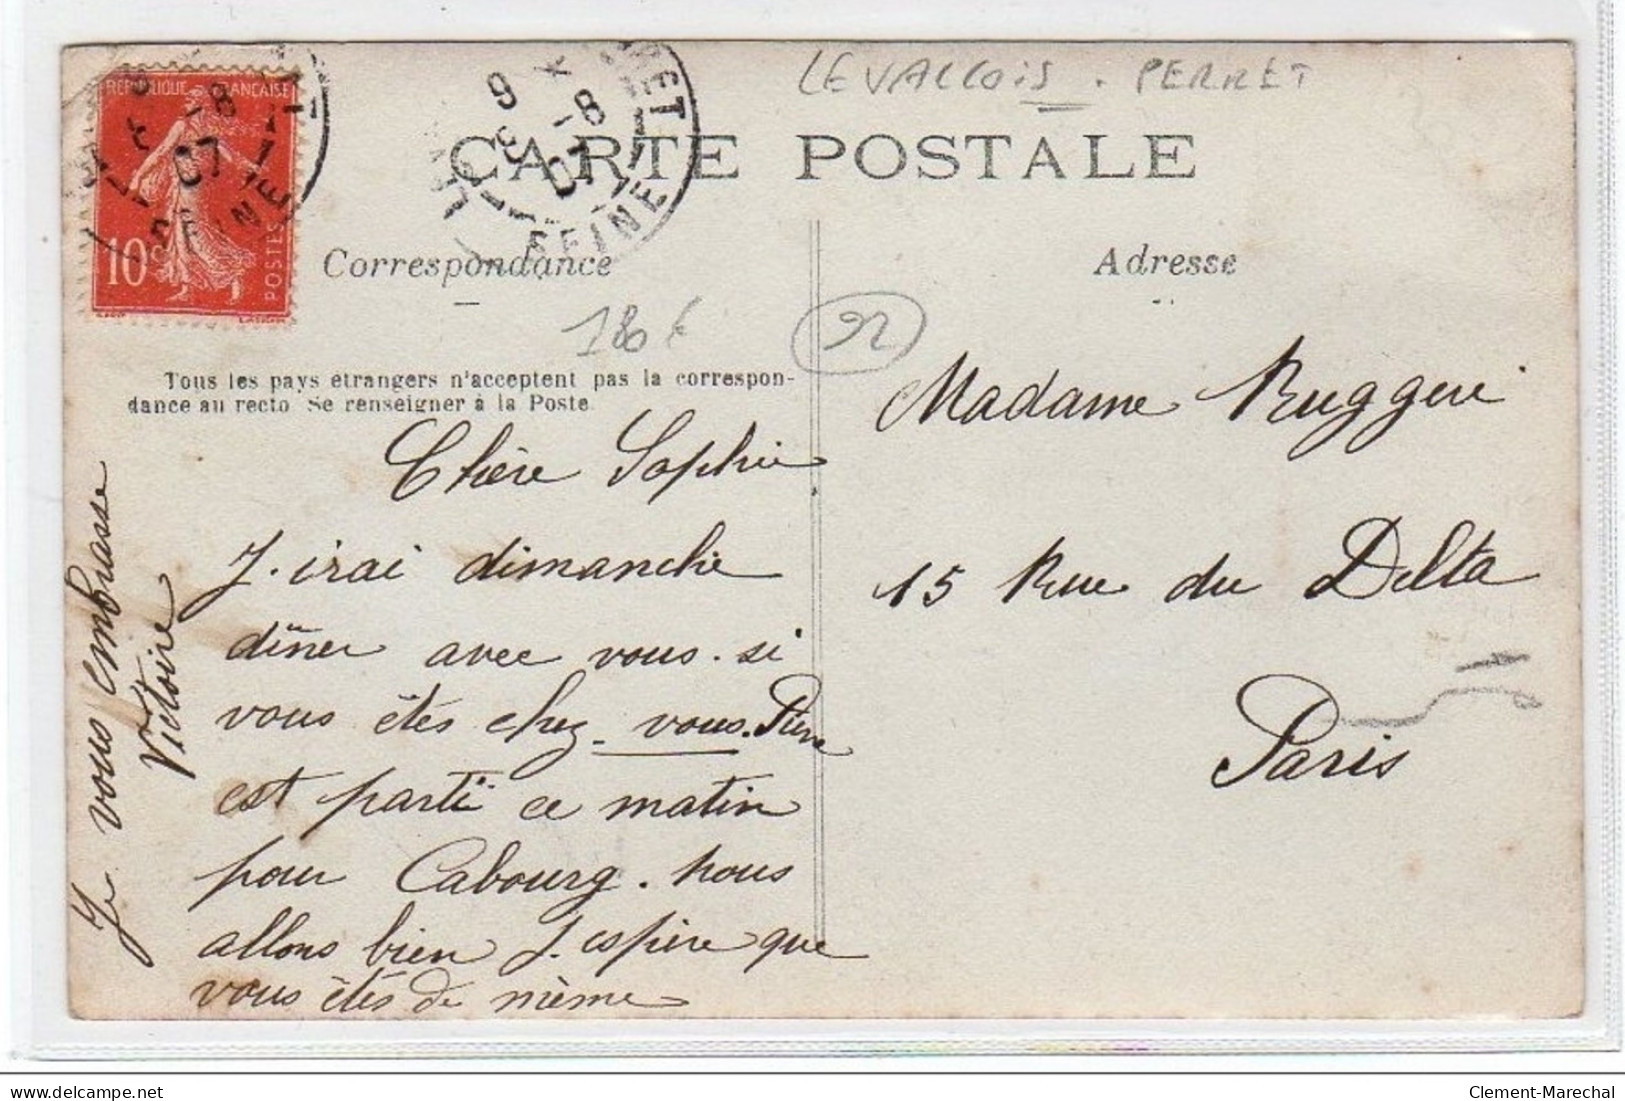 LEVALLOIS . PERRET
REPUBLIQUE FRANÇAISE
10c
POSTES
-8
07
SEINE
RET
-8
07
SEINE
CARTE POSTALE
Correspondance
Adresse
180€
92
Tous les pays étrangers n'acceptent pas la correspon-
dance au recto Se renseigner à la Poste
Chère Sophie
J.irai dimanche
dîner avec vous. si
vous êtes chez. vous. Pierre
est parti ce matin
pour Cabourg. nous
allons bien J.espère que
vous êtes de même
Je vous embrasse
Victoire
Madame Ruggeri
15 Rue du Delta
Paris
delcampe.net
Clement-Marechal